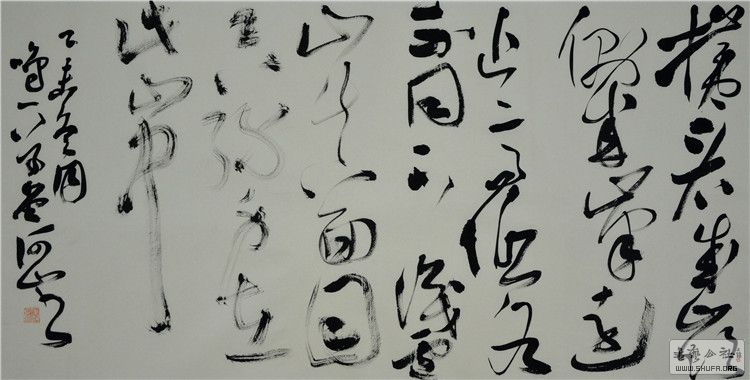 横看成岭
侧成峰远
近高低各
不同不识庐
山真面目
只缘身在
此山中
乙未冬
书法公社
WWW.SHUFA.ORG